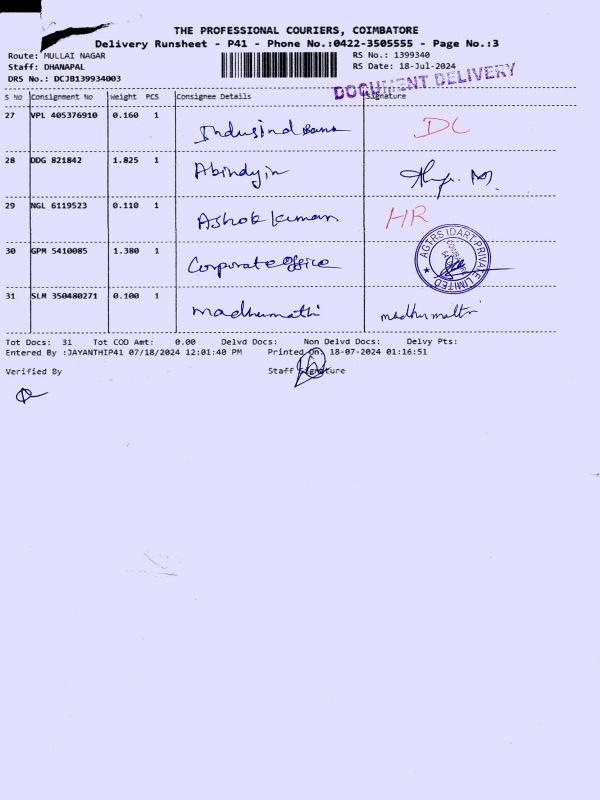 THE PROFESSIONAL COURIERS, COIMBATORE
Delivery Runsheet - P41 - Phone No.:0422-3505555 - Page No.:3
Route: MULLAI NAGAR RS No.: 1399340
Staff: DHANAPAL RS Date: 18-Jul-2024
DRS No.: DCJB139934003 DOCUMENT DELIVERY
S No Consignment No Weight PCS Consignee Details Signature
27 VPL 405376910 0.160 1 Indusind Bank DL
28 DDG 821842 1.825 1 Abindyin
29 NGL 6119523 0.110 1 Ashok kumar HR
30 GPM 5410085 1.380 1 Corporate office
AGTRS IDART PRIVATE LIMITED
31 SLM 350480271 0.100 1 madhumathi madhumathi
Tot Docs: 31 Tot COD Amt: 0.00 Delvd Docs: Non Delvd Docs: Delvy Pts:
Entered By :JAYANTHIP41 07/18/2024 12:01:40 PM Printed On: 18-07-2024 01:16:51
Verified By Staff Signature